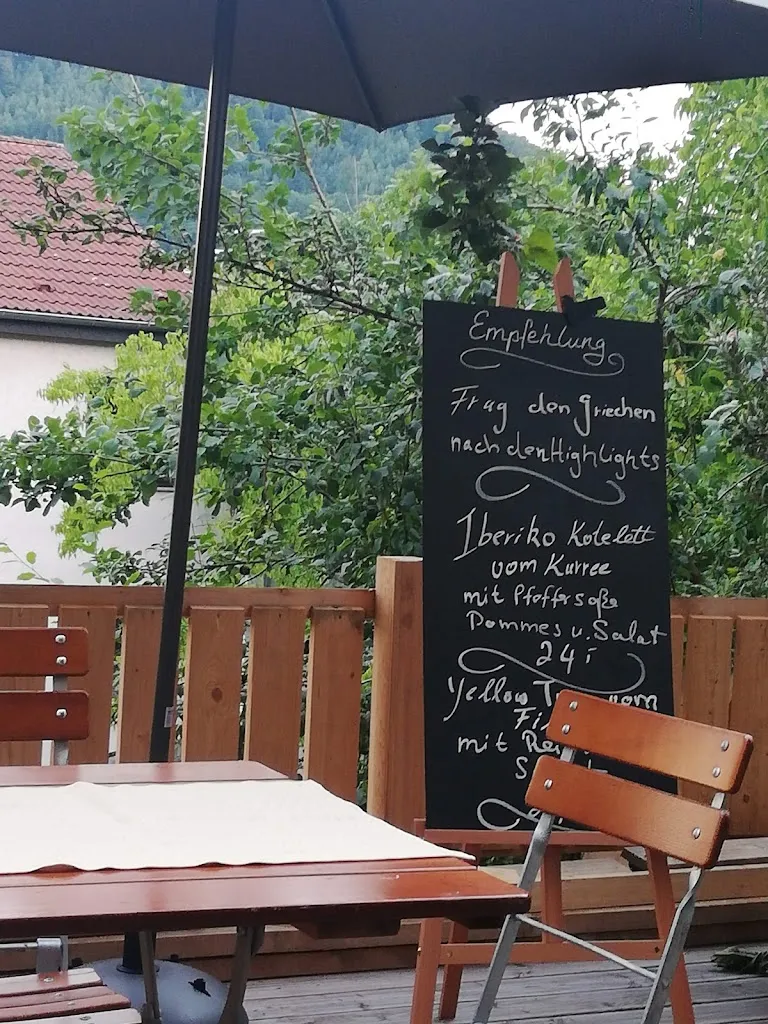 Empfehlung
Frag den Griechen
nach den Highlights
Iberiko Kotelett
vom Karree
mit Pfeffersoße
Pommes u. Salat
24,-
Yellow
mit